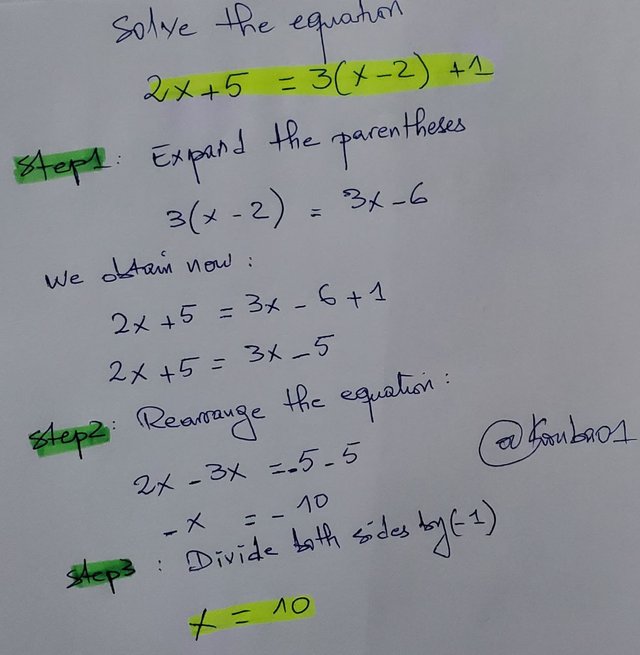 Solve the equation
2x+5 = 3(x-2) +1
Step1: Expand the parentheses
3(x-2) = 3x-6
We obtain now:
2x+5 = 3x-6+1
2x+5 = 3x-5
Step2: Rearrange the equation:
2x-3x = -5-5
-x = -10
Step3: Divide both sides by(-1)
x = 10